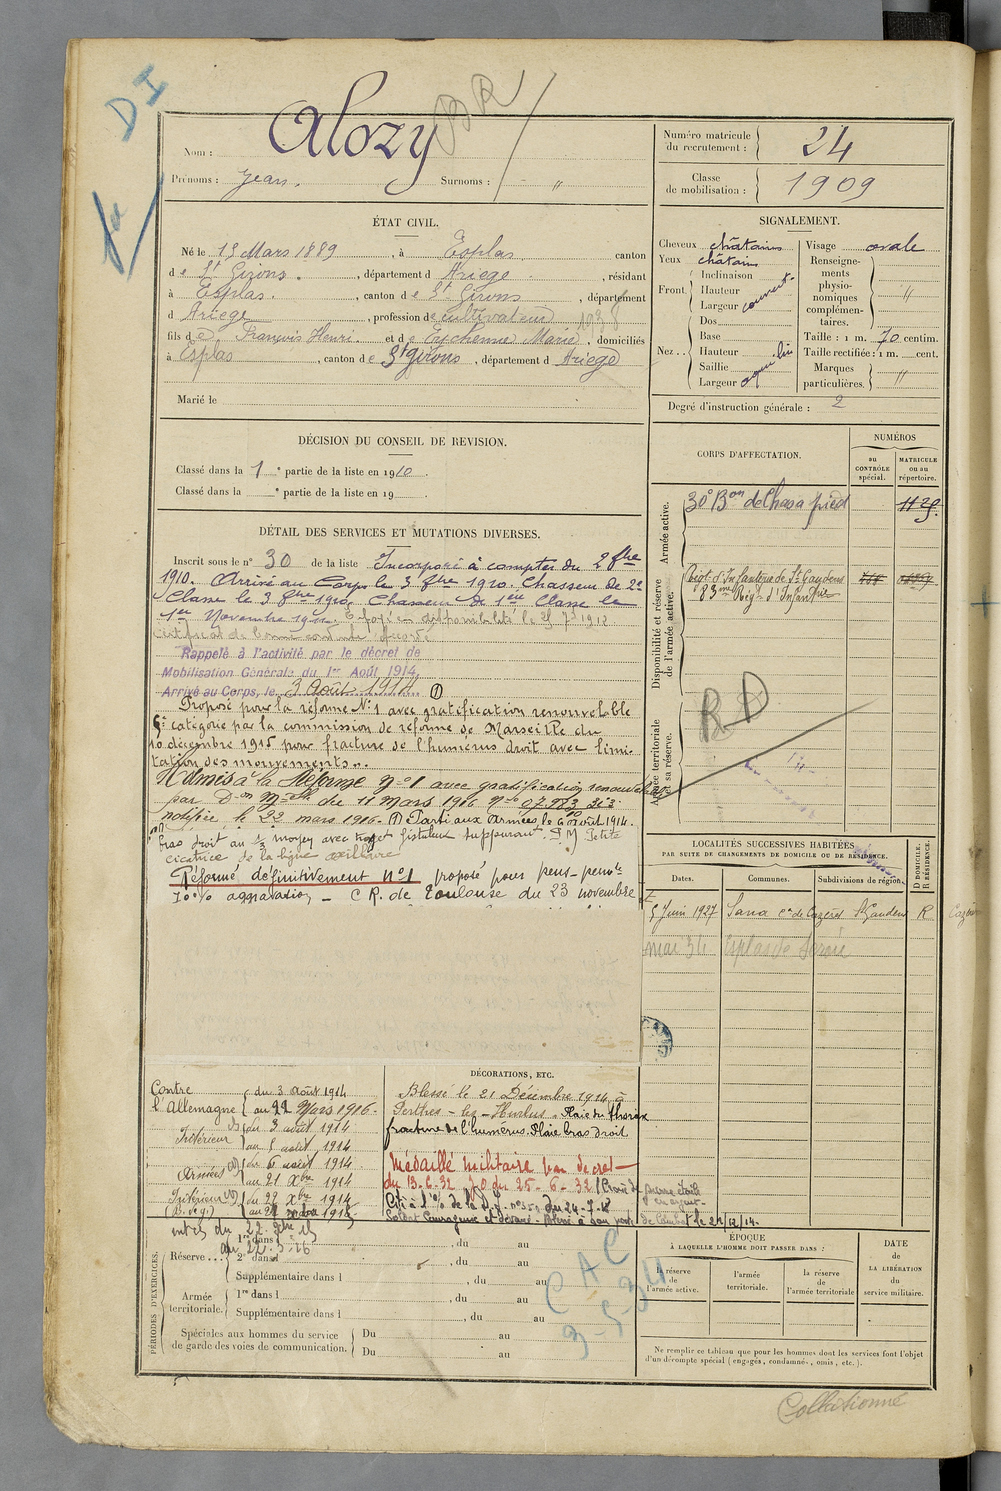 D I
BR
Nom : Alozy
Prénoms : Jean. Surnoms : - "
Numéro matricule du recrutement : 24
Classe de mobilisation : 1909
ÉTAT CIVIL.
Né le 15 Mars 1889, à Esplas, canton
de St Girons, département d Ariège, résidant
à Esplas, canton de St Girons, département
d Ariège, profession de cultivateur
fils de François Henri et de Eychenne Marie, domiciliés
à Esplas, canton de St Girons, département d Ariège
Marié le
SIGNALEMENT.
Cheveux châtains
Yeux châtains
Front. Inclinaison
Hauteur
Largeur couvert
Nez.. Dos
Base
Hauteur
Saillie
Largeur aquilin
Visage ovale
Renseignements physionomiques complémentaires. "
Taille : 1 m. 70 centim.
Taille rectifiée : 1 m. cent.
Marques particulières. "
Degré d'instruction générale : 2
DÉCISION DU CONSEIL DE REVISION.
Classé dans la 1e partie de la liste en 1910.
Classé dans la e partie de la liste en 19
DÉTAIL DES SERVICES ET MUTATIONS DIVERSES.
Inscrit sous le n° 30 de la liste Incorporé à compter du 2 8bre
1910. Arrivé au Corps le 3 8bre 1910. Chasseur de 2e
Classe le 3 8bre 1910. Chasseur de 1ère Classe le
1er Novembre 1911. Envoyé en disponibilité le 25 7bre 1912.
Certificat de bonne conduite accordé
Rappelé à l'activité par le décret de
Mobilisation Générale du 1er Août 1914.
Arrivé au Corps, le 3 Août 1914 (1)
Proposé pour la réforme N°1 avec gratification renouvelable
catégorie par la commission de réforme de Marseille du
10 décembre 1915 pour fracture de l'humérus droit avec limi-
tation des mouvements.
Admis à la Réforme n°1 avec gratification renouvelable
par Don Mlle du 11 mars 1916
notifiée le 22 mars 1916. (1) Parti aux Armées, le 6 août 1914.
Bras droit au 1/3 moyen avec trajet fistuleux suppurant. Petite
cicatrice de la ligne axillaire
Réformé définitivement n°1 proposé pour pens- permte
aggravation - C R. de Toulouse du 23 novembre
CORPS D'AFFECTATION.
NUMÉROS
au CONTRÔLE spécial.
MATRICULE ou au répertoire.
Armée active.
30e Bon de Chas. à pied 1129
Disponibilité et réserve de l'armée active.
Régt d'Infanterie de St Gaudens
83me Régt d'Infanterie
Armée territoriale et sa réserve.
RD
LOCALITÉS SUCCESSIVES HABITÉES
PAR SUITE DE CHANGEMENTS DE DOMICILE OU DE RÉSIDENCE.
Dates. Communes. Subdivisions de région. D DOMICILE. R RÉSIDENCE.
5 Juin 1927 Sana cn de Cazères St Gaudens R
mai 34 Esplas de Sérou
Contre l'Allemagne du 3 août 1914
au 22 Mars 1916.
Intérieur du 3 août 1914
au 5 août 1914
Armées du 6 août 1914
au 21 Xbre 1914
Intérieur du 22 Xbre 1914
DÉCORATIONS, ETC.
Blessé le 21 Décembre 1914 à
Perthes-lez-Hurlus. Plaie du thorax
fracture de l'humérus. Plaie bras droit
Médaillé militaire par décret
du 13-6-32 JO du 25-6-32
Soldat courageux et dévoué. Blessé à son poste de combat le 21/12/14.
PÉRIODES D'EXERCICES.
Réserve... 1re dans l , du au
2e dans l , du au
Supplémentaire dans l , du au
Armée territoriale. 1re dans l , du au
Supplémentaire dans l , du au
Spéciales aux hommes du service de garde des voies de communication. Du au
Du au
C A C
3-5-34
ÉPOQUE
À LAQUELLE L'HOMME DOIT PASSER DANS :
la réserve de l'armée active.
l'armée territoriale.
la réserve de l'armée territoriale
DATE de LA LIBÉRATION du service militaire.
Ne remplir ce tableau que pour les hommes dont les services font l'objet
d'un décompte spécial (engagés, condamnés, omis, etc.).
Collationné